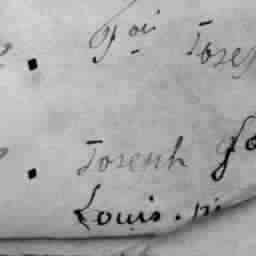 . Foi Josep
. Joseph Jo
Louis. pi